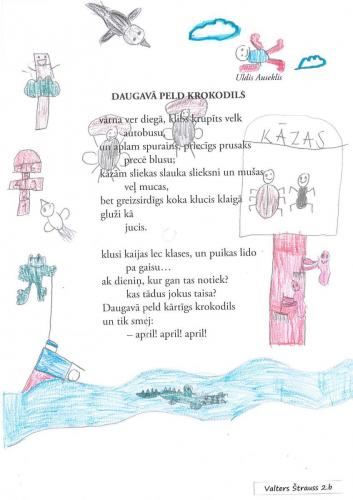 Uldis Auseklis
DAUGAVĀ PELD KROKODILS
vārna ver diegā, klibs krupīts velk
autobusu,
un aplam spurains, priecīgs prusaks
precē blusu;
kāzām sliekas slauka slieksni un mušas
veļ mucas,
bet greizsirdīgs koka klucis klaigā
gluži kā
jucis.
KĀZAS
klusi kaijas lec klases, un puikas lido
pa gaisu…
ak dieniņ, kur gan tas notiek?
kas tādus jokus taisa?
Daugavā peld kārtīgs krokodils
un tik smej:
– april! april! april!
Valters Štrauss 2.b